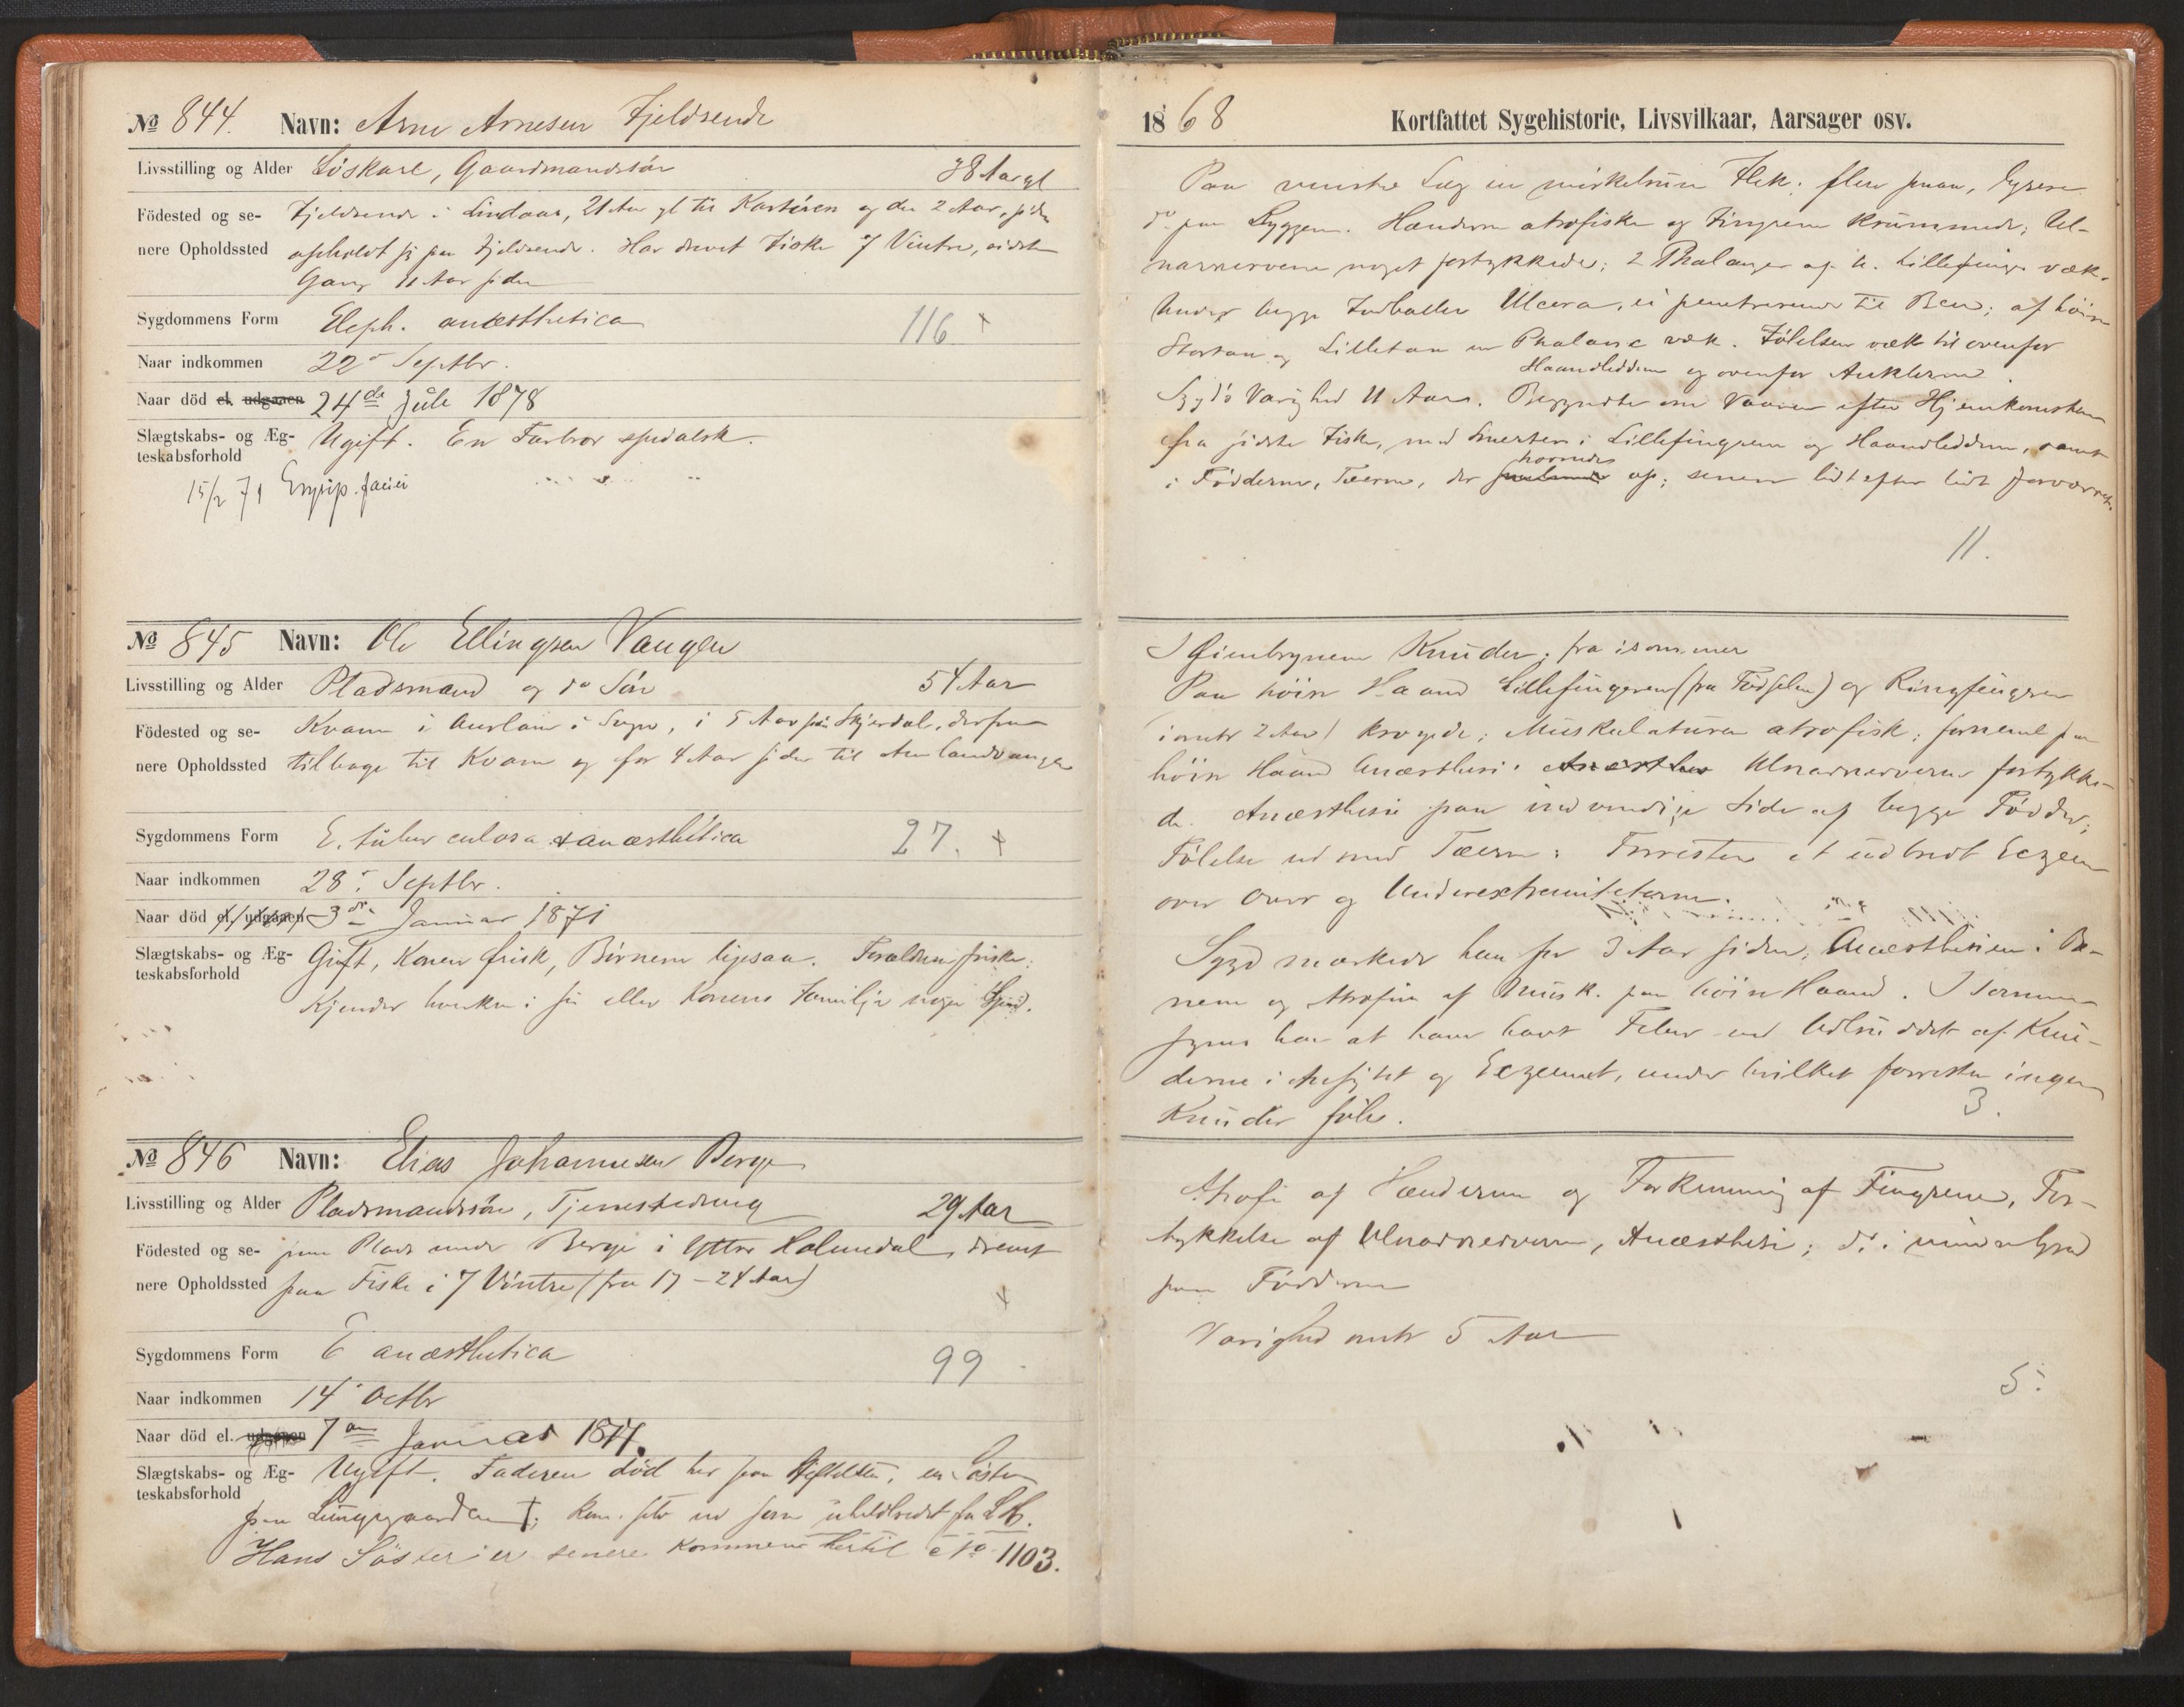 № 844. Navn: Arne Arnesen Fjeldsende
Livsstilling og Alder Löskarl, Gaardmandssön 38 Aar gl
Födested og se- Fjeldsende i Lindaas, 21 Aar gl til Karlsöen og der 2 Aar, siden
nere Opholdssted opholdt sig paa Fjeldsende. Har drevet Fiske 7 Vintre, sidste
Gang 11 Aar siden
Sygdommens Form Eleph. anæsthetica 116 +
Naar indkommen 22 Septbr.
Naar död el. udgaaen 24de Juli 1878
Slægtskabs- og Æg- Ugift. En Farbror spedalsk.
teskabsforhold
15/2 71 Erysip. faciei
№ 845 Navn: Ole Ellingsen Vangen
Livsstilling og Alder Pladsmand og do Sön 54 Aar
Födested og se- Kvam i Aurland i Sogn, i 5 Aar paa Skjerdal, derfra
nere Opholdssted tilbage til Kvam og for 4 Aar siden til Aurlandsvangen
Sygdommens Form E. tuberculosa & anæsthetica 27. +
Naar indkommen 28. Septbr.
Naar död el. udgaaen 3die Januar 1871
Slægtskabs- og Æg- Gift, Konen frisk, Börnene ligesaa. Forældrene friske.
teskabsforhold
Kjender hverken i sin eller Konens Familje nogen Sped.
№ 846 Navn: Elias Johannesen Berge
Livsstilling og Alder Pladsmandssön, Tjenestedreng 29 Aar
Födested og se- paa Plads under Berge i Yttre Holmedal, drevet
nere Opholdssted paa Fiske i 7 Vintre (fra 17 - 24 Aar) +
Sygdommens Form E anæsthetica 99
Naar indkommen 14. Octbr
Naar död el. udgaaen 7de Januar 1877.
Slægtskabs- og Æg- Ugift. Faderen död her paa Stiftelsen, en Söster
teskabsforhold
paa Lungegaarden †; kom selv ud som uhelbredet fra L.H.
Hans Söster er senere kommen hertil cfo 1103.
1868 Kortfattet Sygehistorie, Livsvilkaar, Aarsager osv.
Paa venstre Læg en mörkebrun Flek; flere smaa, lysere
do paa Ryggen. Hænderne atrofiske og Fingrene krummede; Ul-
narnerverne noget fortykkede; 2 Phalanger af v. Lillefinger væk.
Under begge Fodballer Ulcera, ei penetrerende til Ben; af höire
Stortaa og Lilletaa en Phalanx væk. Fölelsen væk til ovenfor
Haandleddene og ovenfor Anklerne.
Sygds Varighed 11 Aar. Begyndte om Vaaren efter Hjemkomsten
fra sidste Fiske, med Smerter i Lillefingrene og Haandleddene, samt
i Födderne, Tæerne, der hovnede op; senere lidt efter lidt forværret.
11.
I Öienbrynene Knuder; fra isommer
Paa höire Haand Lillefingeren (fra Födselen) og Ringfingeren
(omtr 2 Aar) krogede; Muskulaturen atrofisk; fornemel paa
höire Haand Anæsthesi. Ulnarnerverne fortykke-
de. Anæsthesi paa indvendige Side af begge Födder;
Fölelse ud mod Tæerne: Forresten et udbredt Eczem
over Over og Underextremiteterne.
Sygd mærkede han for 3 Aar siden, Anæsthesien i Be-
nene og Atrofien af Musk. paa höire Haand. I Sommer
synes han at have havt Feber ved Udbruddet af Knu-
derne i Ansigtet og Eczemet, under hvilket forresten ingen
Knuder föles. 3.
Atrofi af Hænderne og Forkrumning af Fingrene, For-
tykkelse af Ulnarnerverne, Anæsthesi; do i mindre Grad
paa Födderne
Varighed omtr 5 Aar
5.